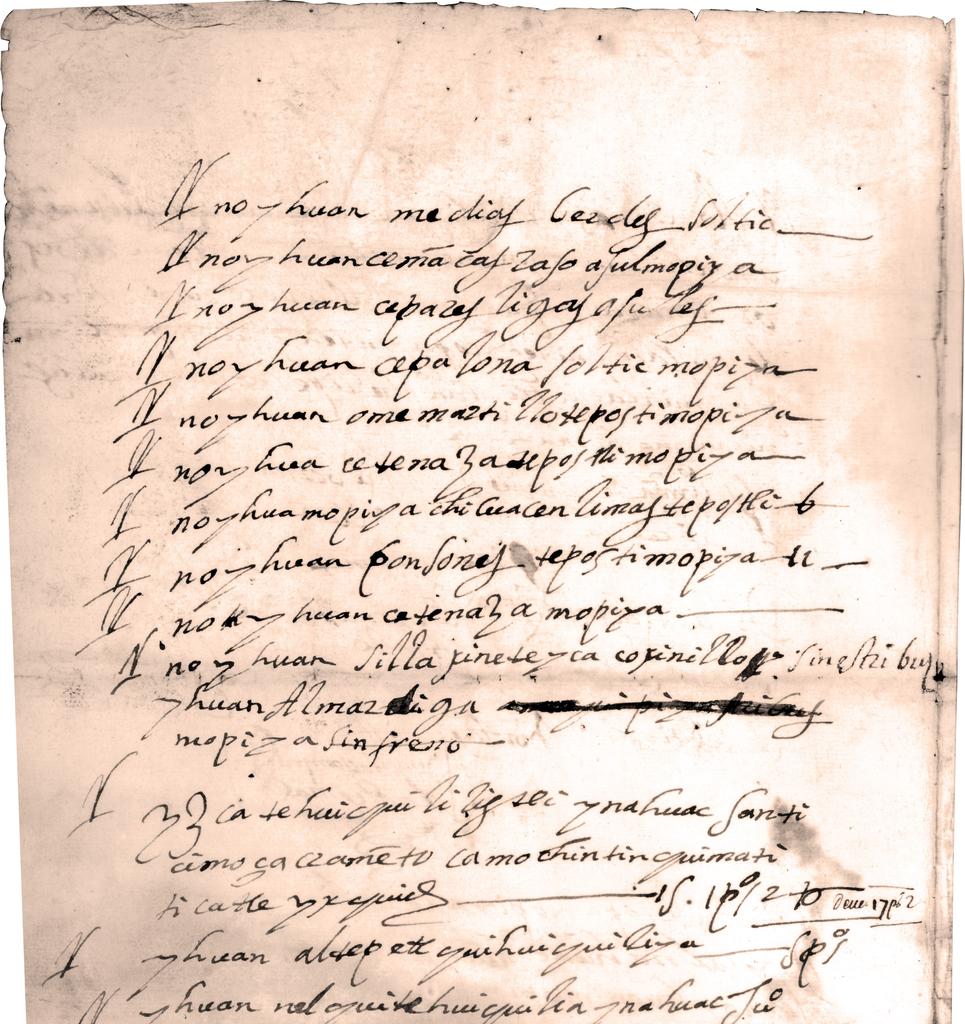 noyhuan medias berdes soltic
noyhuan cemā ças raso asul mopiya
noyhuan ce pares ligas asules
noyhuan ce palona soltic mopiya
noyhuan ome martillo teposti mopiya
noyhua ce tenaza tepostli mopiya
noyhua mopiya chicuacen limas tepostli 6
noyhuan ponsones teposti mopiya 11
noyhuan ce tenaza mopiya
noyhuan silla jineteyca co sin estribus
yhuan Almardiga
mopiya sin freno
yz catehuicquili ynahuac santi
cimo çacramēto ca mochintin quimati
ticatte yxquich 15. 1pos 2 to deve 17ps 2
yhuan altepetl quihuiquiliya 5pos
yhuan nelquitehuicquilia ynahuac Juo